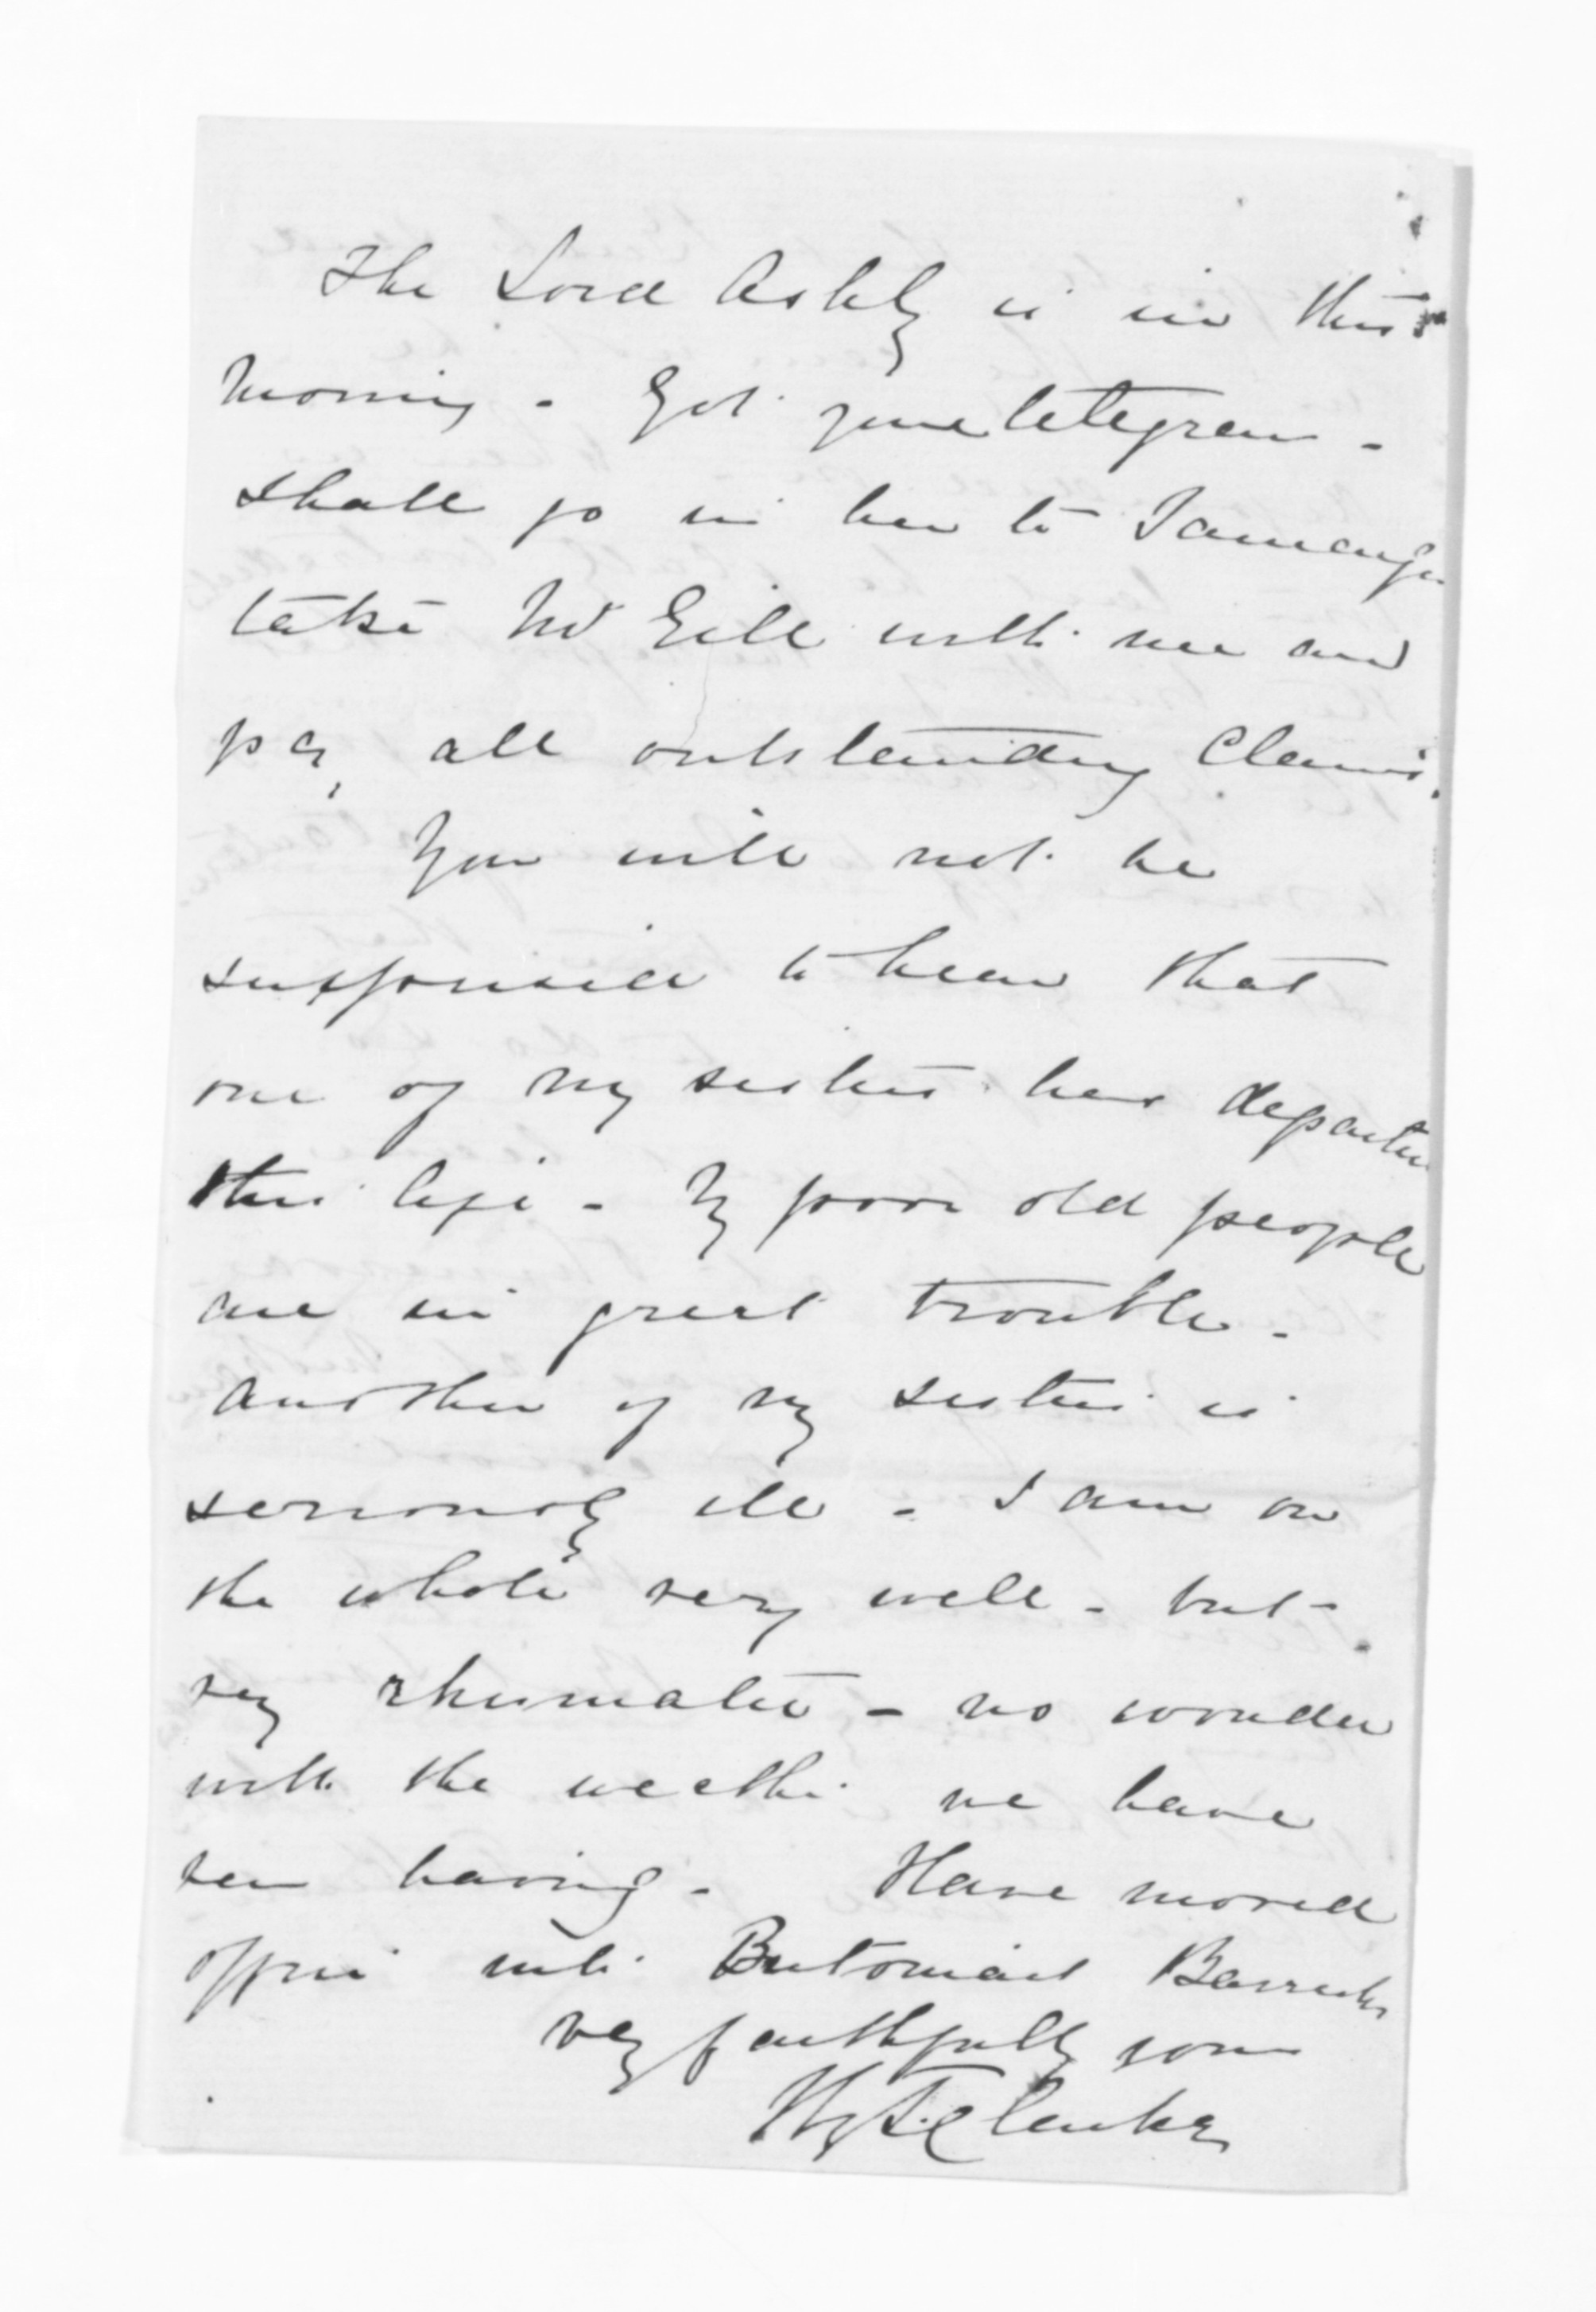 The Lord Ashly is in this
morning - Got your telegram -
shall go in her to Tauranga
take Mr Gill with me and
pay all outstanding Claims.
You will not be
surprised to hear that
one of my sisters has departed
this life - My poor old people
are in great trouble -
another of my sisters is
seriously ill - I am on
the whole very well - but
very rheumatic - no wonder
with the weather we have
been having - Have moved
office into Britomart Barracks
very faithfully yours
Hy T. Clarke